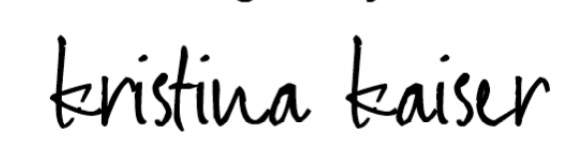 kristina kaiser